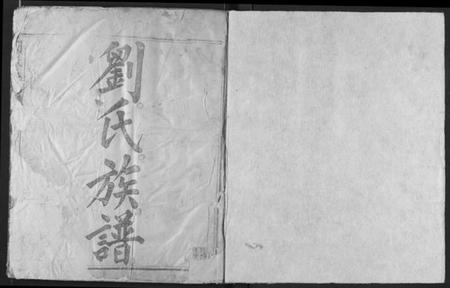 劉氏族譜